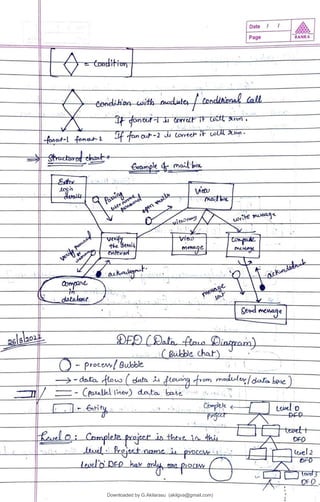 Date / /
Page
RANKA
= Condition
condition with modules / Conditional Call
If fanout-1 is correct it will run.
-fanout-1 fanout-2 If fan out-2 is correct it will run.
Structured chart :-
Example of mail box
Enter
login
details
Passing
username
password
open mails
View
mail box
viewing
write message
verify password
verify
the details
entered
View
message
Compose
message
acknowledgment
Compare
in
database
message
Send message
26/8/2022
DFD (Data flow Diagram)
(Bubble chat)
- process/ Bubble
- data flow (data is flowing from modules/data base)
- (parallel lines) data base
- Entity
Complete
project
Level 0
DFD
Level 1
DFD
Level 0 : Complete project is there in this
level. Project name is process
level 0 DFD has only one process
Level 2
DFD
Level 3
DFD
Downloaded by G.Akilarasu (akilgva@gmail.com)